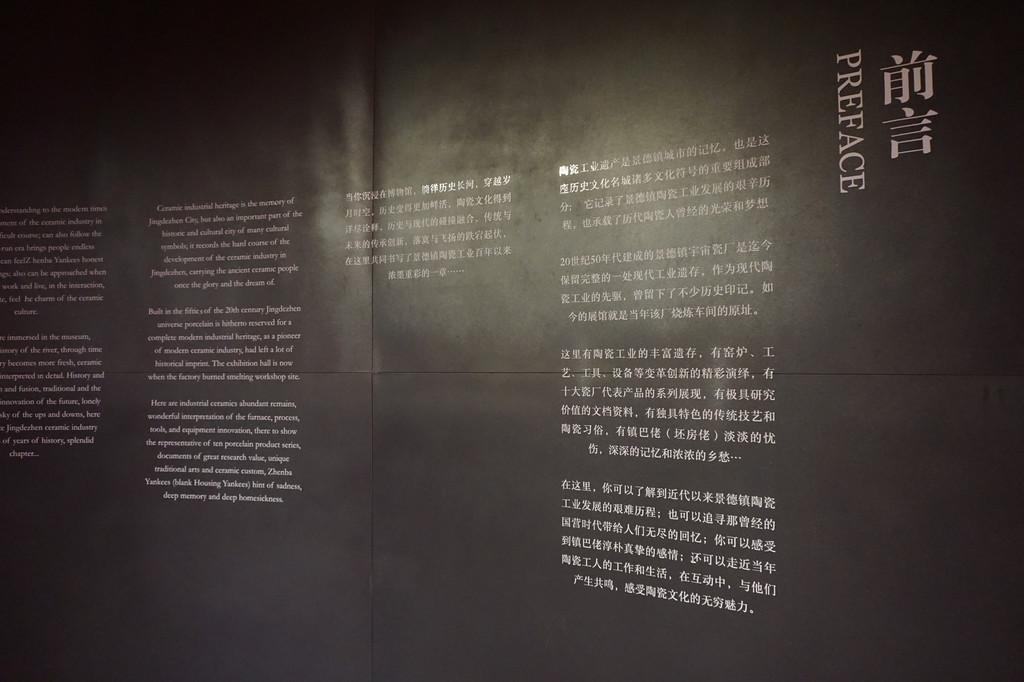 前言
PREFACE
陶瓷工业遗产是景德镇城市的记忆，也是这
座历史文化名城诸多文化符号的重要组成部
分；它记录了景德镇陶瓷工业发展的艰辛历
程，也承载了历代陶瓷人曾经的光荣和梦想
20世纪50年代建成的景德镇宇宙瓷厂是迄今
保留完整的一处现代工业遗存，作为现代陶
瓷工业的先驱，曾留下了不少历史印记。如
今的展馆就是当年该厂烧炼车间的原址。
这里有陶瓷工业的丰富遗存，有窑炉、工
艺、工具、设备等变革创新的精彩演绎，有
十大瓷厂代表产品的系列展现，有极具研究
价值的文档资料，有独具特色的传统技艺和
陶瓷习俗，有镇巴佬（坯房佬）淡淡的忧
伤，深深的记忆和浓浓的乡愁…
在这里，你可以了解到近代以来景德镇陶瓷
工业发展的艰难历程；也可以追寻那曾经的
国营时代带给人们无尽的回忆；你可以感受
到镇巴佬淳朴真挚的感情；还可以走近当年
陶瓷工人的工作和生活，在互动中，与他们
产生共鸣，感受陶瓷文化的无穷魅力。
当你沉浸在博物馆，徜徉历史长河，穿越岁
月时空，历史变得更加鲜活，陶瓷文化得到
详尽诠释，历史与现代的碰撞融合，传统与
未来的传承创新，落寞与飞扬的跌宕起伏，
在这里共同书写了景德镇陶瓷工业百年以来
浓墨重彩的一章……
Ceramic industrial heritage is the memory of
Jingdezhen City, but also an important part of the
historic and cultural city of many cultural
symbols; it records the hard course of the
development of the ceramic industry in
Jingdezhen, carrying the ancient ceramic people
once the glory and the dream of.
Built in the fifties of the 20th century Jingdezhen
universe porcelain is hitherto reserved for a
complete modern industrial heritage, as a pioneer
of modern ceramic industry, had left a lot of
historical imprint. The exhibition hall is now
when the factory burned smelting workshop site.
Here are industrial ceramics abundant remains,
wonderful interpretation of the furnace, process,
tools, and equipment innovation, there to show
the representative of ten porcelain product series,
documents of great research value, unique
traditional arts and ceramic custom, Zhenba
Yankees (blank Housing Yankees) hint of sadness,
deep memory and deep homesickness.
to the modern times
of the ceramic industry in
difficult course; can also follow the
run era brings people endless
can feelZ henba Yankees honest
also can be approached when
work and live, in the interaction,
feel he charm of the ceramic
culture.
immersed in the museum,
of the river, through time
becomes more fresh, ceramic
interpreted in detail. History and
and fusion, traditional and the
innovation of the future, lonely
of the ups and downs, here
Jingdezhen ceramic industry
of years of history, splendid
chapter...